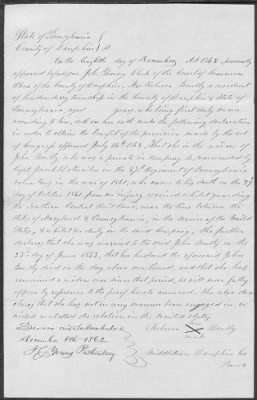 State of Pennsylvania }
County of Dauphin } ss
On the Eighth day of December A.D. 1862 personally
appeared before me J. C. Young Clerk of the Court of Common
Pleas of the County of Dauphin, Mrs Rebecca Bently a resident
of Londonderry township in the County of Dauphin & State of
Pennsylvania, aged years, who being first duly sworn
according to law, doth on her oath make the following declaration
in order to obtain the benefit of the provision made by the act
of Congress approved July 14th 1862. That she is the widow of
John Bently who was a private in company commanded by
Capt in the 87th Regiment of Pennsylvania
Volunteers in the war of 1861, who came to his death on the 27th
day of October 1861 from an injury received whilst guarding
the Northern Central Rail Road, near the line between the
States of Maryland & Pennsylvania, in the service of the United
States, & whilst on duty in the said Company. She further
declares that she was married to the said John Bently on the
23d day of June 1853, that her husband the aforesaid John
Bently died on the day above mentioned, and that she has
remained a widow ever since that period, as will more fully
appear by reference to the proof hereto annexed. She also de-
clares that she has not in any manner been engaged in or
aided or abetted the rebellion in the United States.
Sworn and subscribed
December 8th 1862
J. C. Young Prothonotary
Rebecca X Bently
Middletown Dauphin Co
Penna